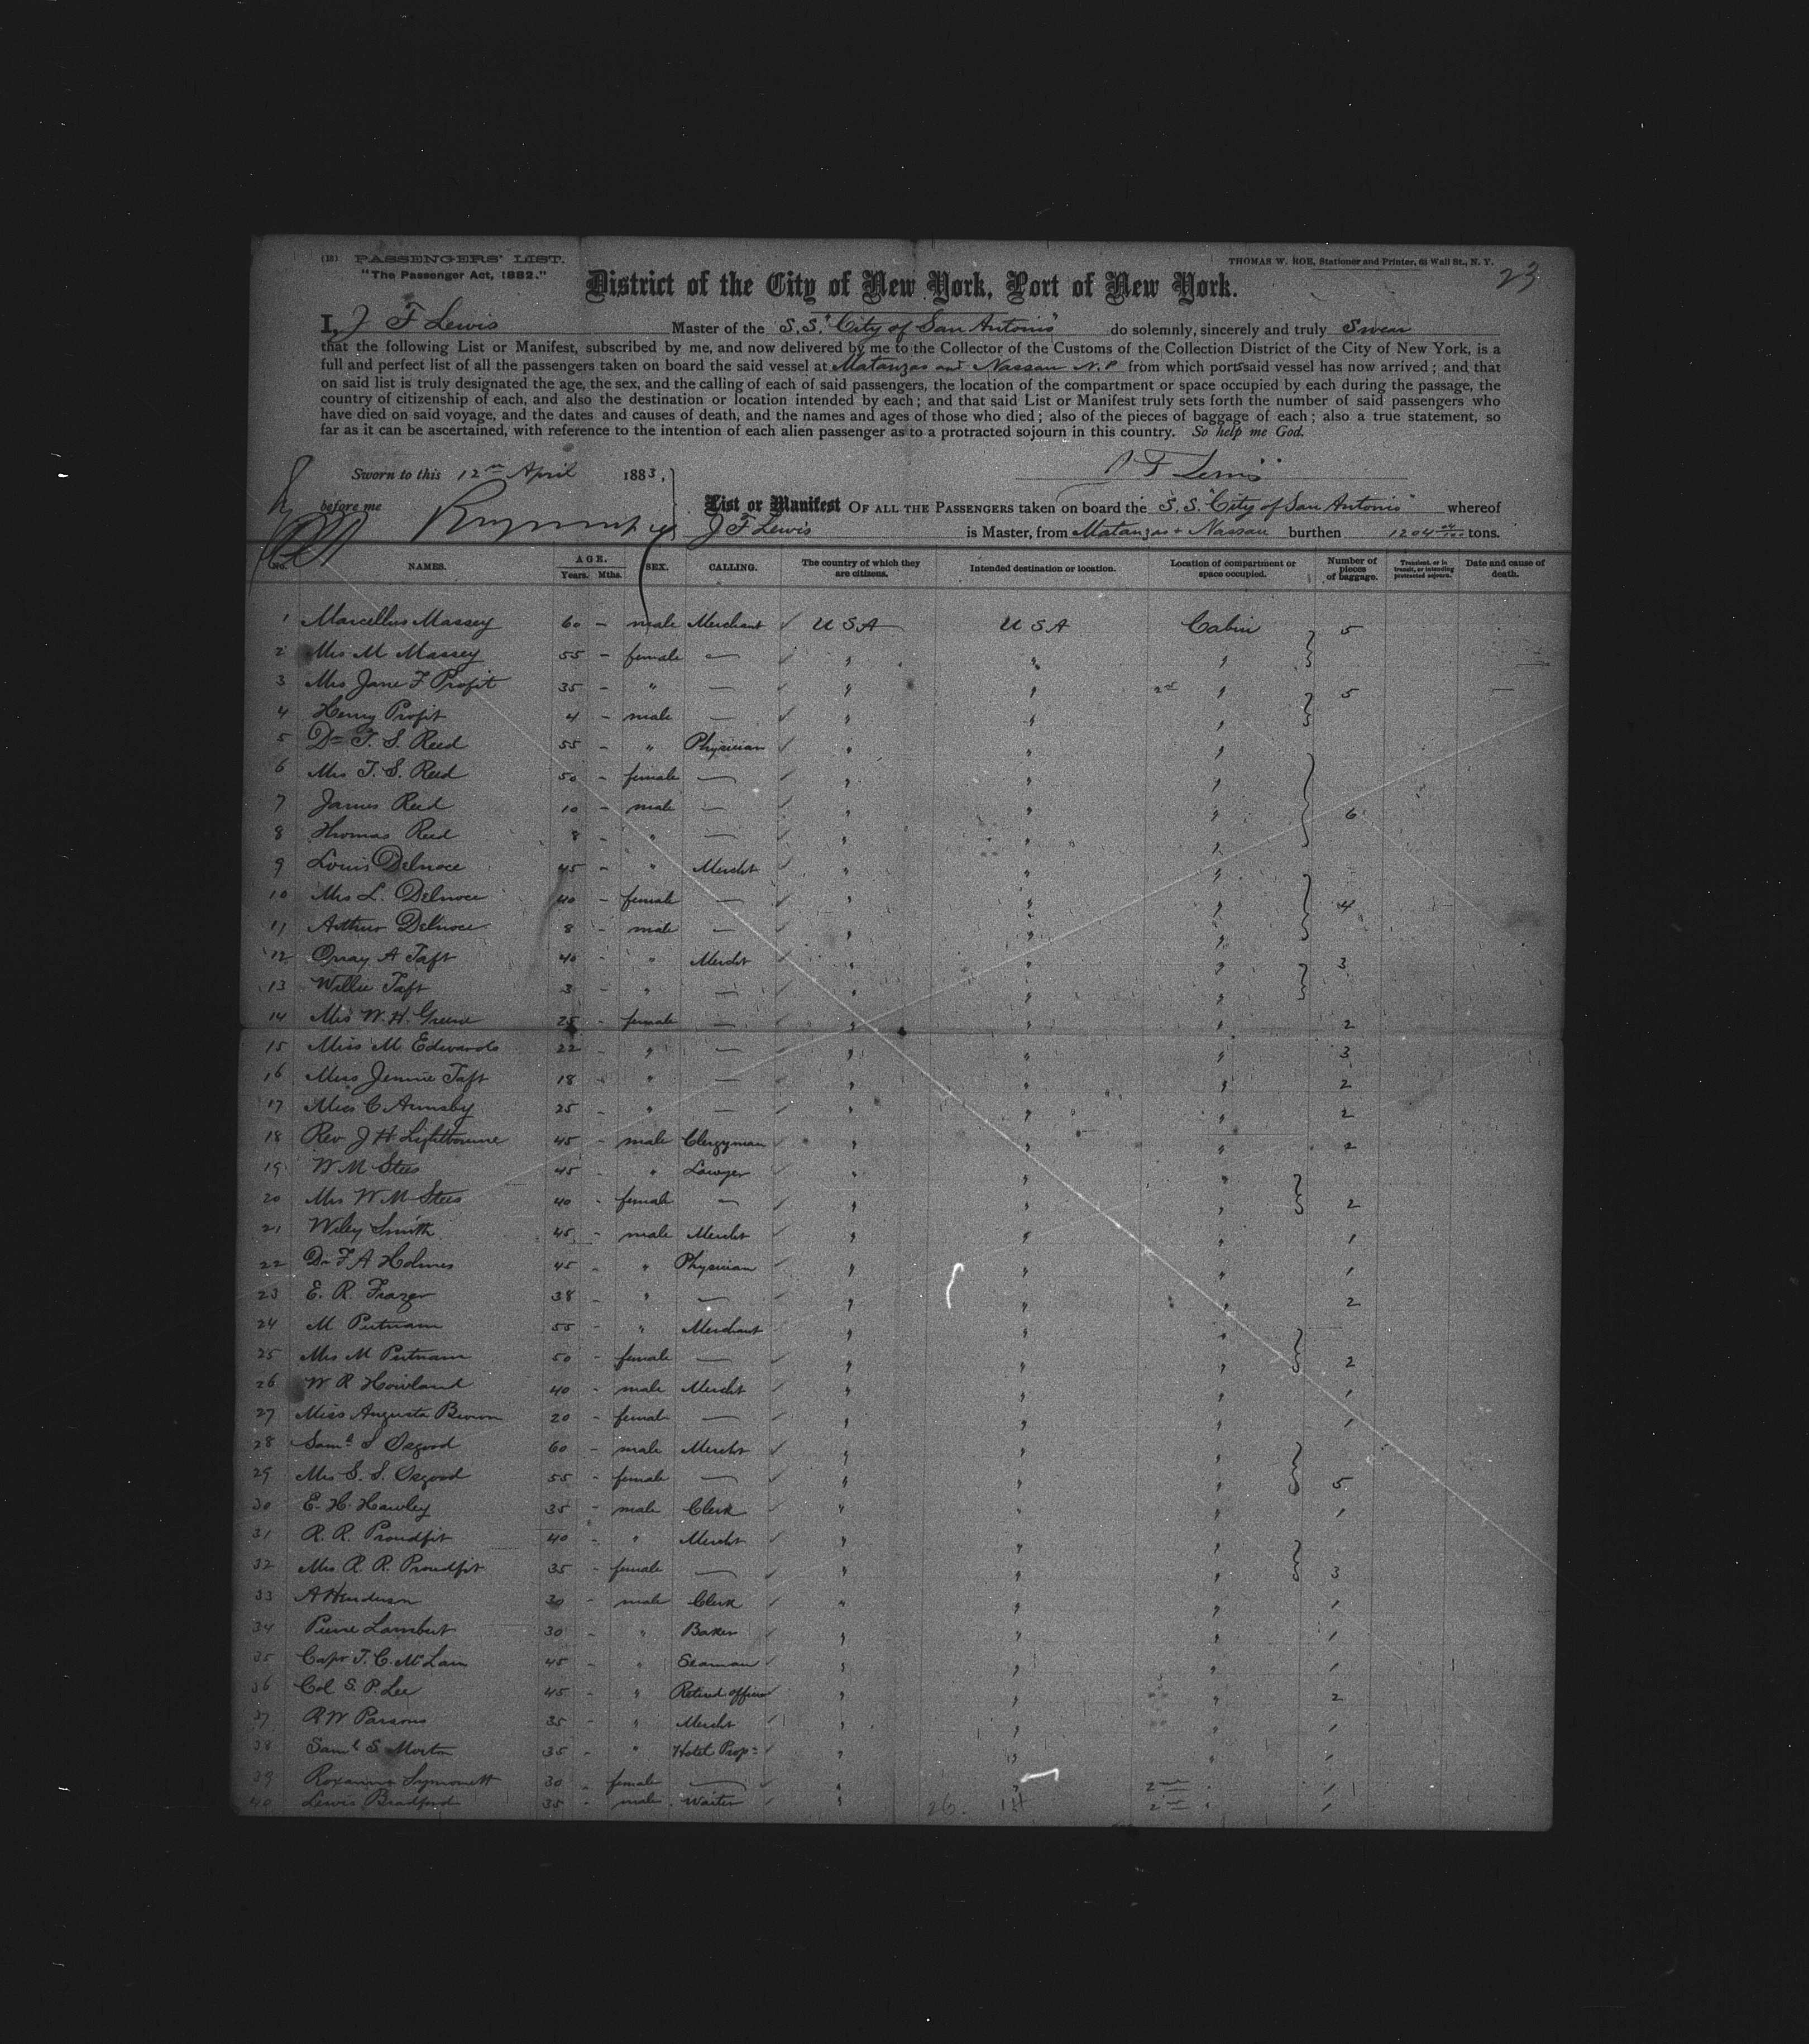 (12) PASSENGERS' LIST.
"The Passenger Act, 1882."
THOMAS W. ROE, Stationer and Printer, 65 Wall St., N. Y.
23
District of the City of New York, Port of New York.
I, J F Lewis Master of the S.S. "City of San Antonio" do solemnly, sincerely and truly Swear
that the following List or Manifest, subscribed by me, and now delivered by me to the Collector of the Customs of the Collection District of the City of New York, is a
full and perfect list of all the passengers taken on board the said vessel at Matanzas and Nassau N.P from which ports said vessel has now arrived; and that
on said list is truly designated the age, the sex, and the calling of each of said passengers, the location of the compartment or space occupied by each during the passage, the
country of citizenship of each, and also the destination or location intended by each; and that said List or Manifest truly sets forth the number of said passengers who
have died on said voyage, and the dates and causes of death, and the names and ages of those who died; also of the pieces of baggage of each; also a true statement, so
far as it can be ascertained, with reference to the intention of each alien passenger as to a protracted sojourn in this country. So help me God.
Sworn to this 12th April 1883,
J F Lewis
before me
List or Manifest OF ALL THE PASSENGERS taken on board the S.S. "City of San Antonio" whereof
J F Lewis is Master, from Matanzas + Nassau burthen 1204 04/100 tons.
No. NAMES. AGE. Years. Mths. SEX. CALLING. The country of which they are citizens. Intended destination or location. Location of compartment or space occupied. Number of pieces of baggage. Transient, or in transit, or intending protracted sojourn. Date and cause of death.
1 Marcellus Massey 60 - male Merchant ✓ U S A U S A Cabin 5
2 Mrs M Massey 55 - female — ✓ " " "
3 Mrs Jane F Profit 35 - " — ✓ " " 2nd " 5 —
4 Henry Profit 4 - male — ✓ " " "
5 Dr T. S. Reed 55 - " Physician ✓ " " "
6 Mrs T. S. Reed 50 - female — ✓ " " "
7 James Reed 10 - male — ✓ " " " 6
8 Thomas Reed 8 - " — ✓ " " "
9 Louis Delnoce 45 - " Mercht ✓ " " "
10 Mrs L. Delnoce 40 - female — ✓ " " " 4
11 Arthur Delnoce 8 - male — ✓ " " "
12 Oray A Taft 40 - " Mercht ✓ " " " 3
13 Willie Taft 3 - " — ✓ " " "
14 Mrs W. H. Greene 25 - female — " " " 2
15 Miss M. Edwards 22 - " — ✓ " " " 3
16 Miss Jennie Taft 18 - " — ✓ " " " 2
17 Miss C Armsby 25 - " — ✓ " " " 2
18 Rev J H Lightbourne 45 - male Clergyman ✓ " " " 2
19 W M Stees 45 - " Lawyer ✓ " " "
20 Mrs W M Stees 40 - female — ✓ " " " 2
21 Wiley Smith 45 - male Mercht ✓ " " " 1
22 Dr F A Holmes 45 - " Physician ✓ " " " 1
23 E. R. Frazer 38 - " — ✓ " " " 2
24 M Putnam 55 - " Merchant ✓ " " "
25 Mrs M Putnam 50 - female — ✓ " " " 2
26 W R Howland 40 - male Mercht ✓ " " " 1
27 Miss Augusta Brown 20 - femal — ✓ " " " 1
28 Saml S Osgood 60 - male Mercht ✓ " " "
29 Mrs S. S. Osgood 55 - female — ✓ " " " 5
30 E. H. Hawley 35 - male Clerk ✓ " " " 1
31 R. R. Proudfit 40 - " Mercht ✓ " " "
32 Mrs R. R. Proudfit 35 - female — ✓ " " " 3
33 A Henderson 30 - male Clerk ✓ " " " 1
34 Pierre Lambert 30 - " Baker ✓ " " " 1
35 Capt T. C. McLain 45 - " Seaman ✓ " " " 1
36 Col S. P. Lee 45 - " Retired officer ✓ " " " 2
37 R W Parsons 35 - " Mercht ✓ " " " 1
38 Saml S. Morton 35 - " Hotel Propr ✓ " " " 1
39 Roxanna Symonett 30 - female — ✓ " " 2nd " 1
40 Lewis Bradford 35 - male Waiter ✓ " 2nd " 1
26.